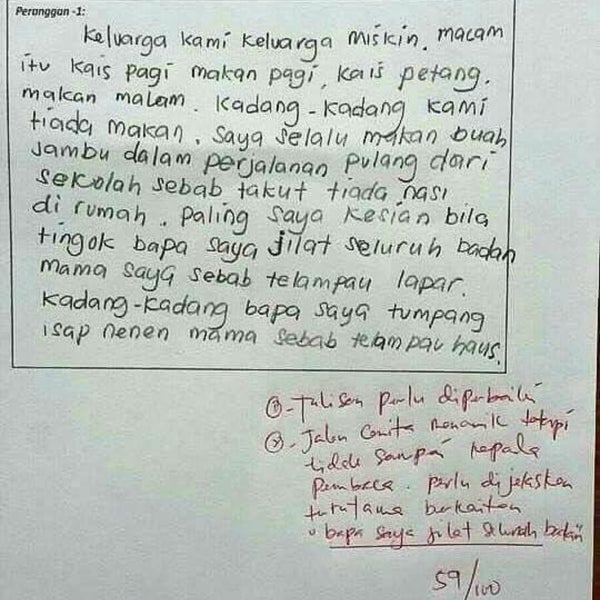 Peranggan -1:
Keluarga kami keluarga miskin. macam
itu kais pagi makan pagi, kais petang.
makan malam. Kadang-kadang kami
tiada makan. saya selalu makan buah
jambu dalam perjalanan pulang dari
sekolah sebab takut tiada nasi
di rumah. paling saya kesian bila
tingok bapa saya jilat seluruh badan
mama saya sebab telampau lapar.
Kadang-kadang bapa saya tumpang
isap nenen mama sebab telampau haus.
- Tulisan perlu diperbaiki
- Jalan cerita menarik tetapi
tidak sampai kepala
pembaca. perlu dijelaskan
terutama berkaitan
"bapa saya jilat seluruh badan"
59/100